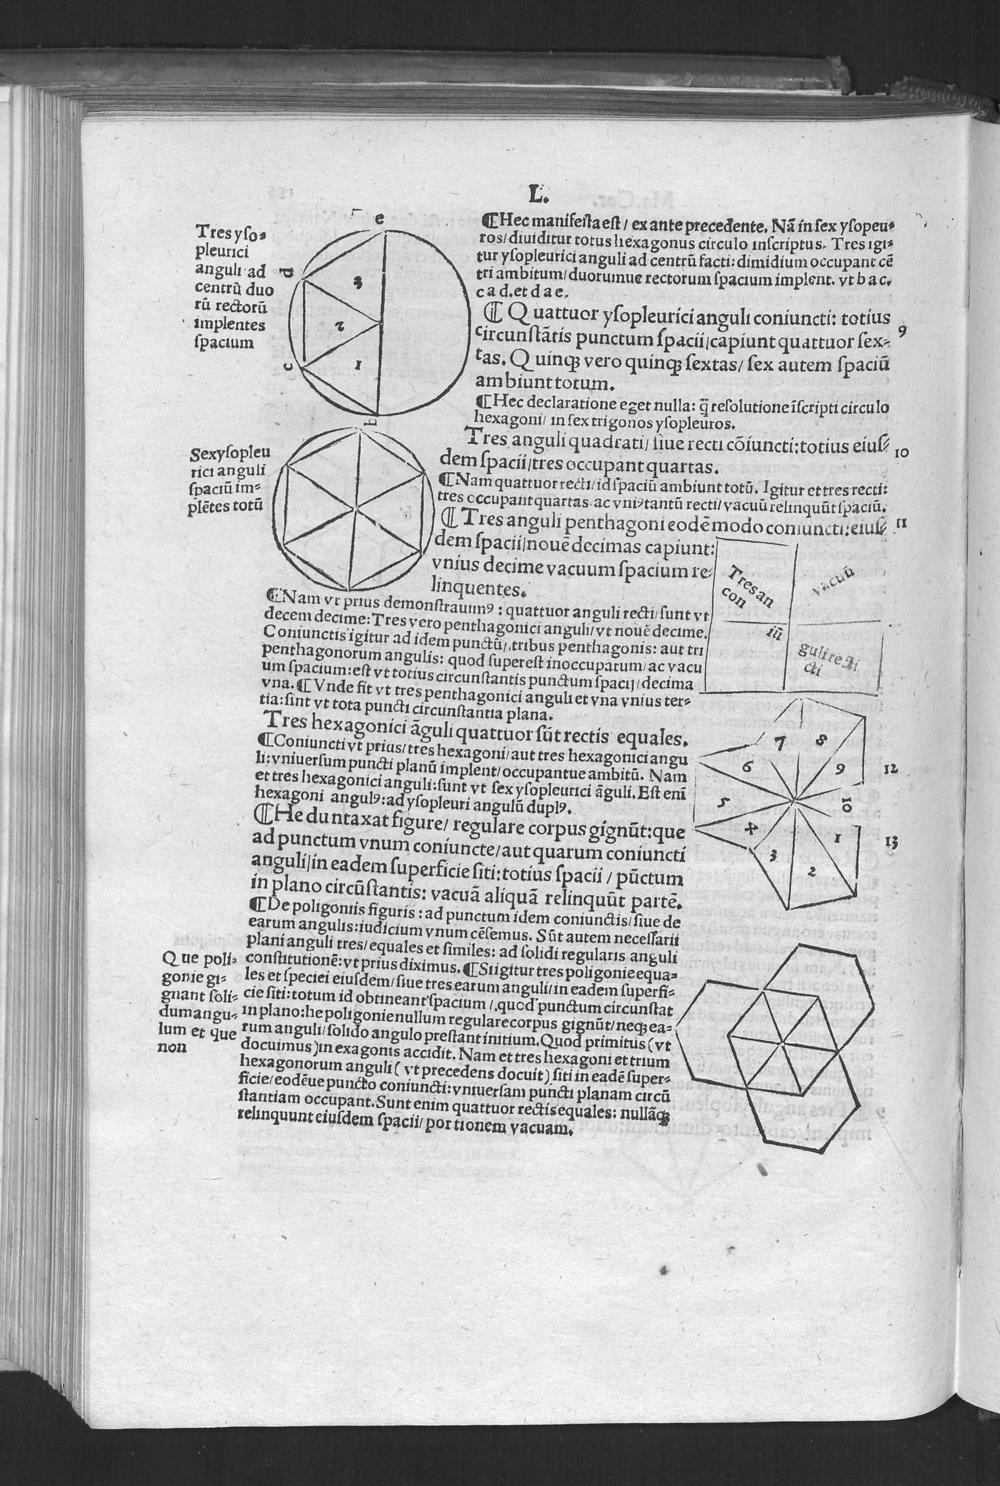 L.
Tres yſo⸗
pleurici
anguli ad
centrū duo
rū rectorū
implentes
ſpacium
e
d
3
2
1
c
b
¶Hec manifeſta eſt/ ex ante precedente. Nā in ſex yſopeu⸗
ros/diuiditur totus hexagonus circulo inſcriptus. Tres igi⸗
tur yſopleurici anguli ad centrū facti: dimidium occupant cē
tri ambitum/duorumue rectorum ſpacium implent. vt b a c.
c a d. et d a e.
¶ Quattuor yſopleurici anguli coniuncti: totius
circunſtātis punctum ſpacii/capiunt quattuor ſex⸗
tas. Quinqꝫ vero quinqꝫ ſextas/ ſex autem ſpaciū
ambiunt totum.
9
¶Hec declaratione eget nulla: q̄ reſolutione īſcripti circulo
hexagoni/ in ſex trigonos yſopleuros.
Sex yſopleu
rici anguli
ſpaciū im⸗
plētes totū
Tres anguli quadrati/ ſiue recti cōiuncti:totius eiuſ⸗
dem ſpacii/tres occupant quartas.
10
¶Nam quattuor recti/ id ſpaciū ambiunt totū. Igitur et tres recti:
tres occupant quartas. ac vniꝰ tantū recti/ vacuū relinquūt ſpaciū.
¶ Tres anguli penthagoni eodē modo coniuncti:eiuſ⸗
dem ſpacii/nouē decimas capiunt:
vnius decime vacuum ſpacium re⸗
linquentes.
11
Tres an
con
vacuū
iū
guli recti
cti
¶Nam vt prius demonſtrauimꝰ : quattuor anguli recti/ ſunt vt
decem decime: Tres vero penthagonici anguli/ vt nouē decime.
Coniunctis igitur ad idem punctū/ tribus penthagonis: aut tri
penthagonorum angulis: quod ſupereſt inoccupatum/ ac vacu
um ſpacium: eſt vt totius circunſtantis punctum ſpacij/ decima
vna. ¶ Vnde fit vt tres penthagonici anguli et vna vnius ter⸗
tia: ſint vt tota puncti circunſtantia plana.
Tres hexagonici āguli quattuor ſūt rectis equales.
12
¶Coniuncti vt prius/ tres hexagoni/ aut tres hexagonici angu
li: vniuerſum puncti planū implent/ occupantue ambitū. Nam
et tres hexagonici anguli: ſunt vt ſex yſopleurici āguli. Eſt enī
hexagoni angulꝰ: ad yſopleuri angulū duplꝰ.
7
8
6
9
5
10
4
1
3
2
¶He duntaxat figure/ regulare corpus gignūt: que
ad punctum vnum coniuncte/ aut quarum coniuncti
anguli/in eadem ſuperficie ſiti: totius ſpacii / pūctum
in plano circūſtantis: vacuā aliquā relinquūt partē.
13
¶De poligoniis figuris : ad punctum idem coniunctis/ ſiue de
earum angulis: iudicium vnum cēſemus. Sūt autem neceſſarii
plani anguli tres/ equales et ſimiles: ad ſolidi regularis anguli
conſtitutionē: vt prius diximus. ¶Si igitur tres poligonie equa⸗
les et ſpeciei eiuſdem/ ſiue tres earum anguli/ in eadem ſuperfi⸗
cie ſiti: totum id obtineant ſpacium/ quod punctum circunſtat
in plano: he poligonie nullum regulare corpus gignūt/ neqꝫ ea⸗
rum anguli/ ſolido angulo preſtant initium. Quod primitus (vt
docuimus) in exagonis accidit. Nam et tres hexagoni et trium
hexagonorum anguli ( vt precedens docuit) ſiti in eadē ſuper⸗
ficie/ eodēue puncto coniuncti: vniuerſam puncti planam circū
ſtantiam occupant. Sunt enim quattuor rectis equales: nullāqꝫ
relinquunt eiuſdem ſpacii/ portionem vacuam.
Que poli⸗
gonie gi⸗
gnant ſoli⸗
dum angu⸗
lum et que
non